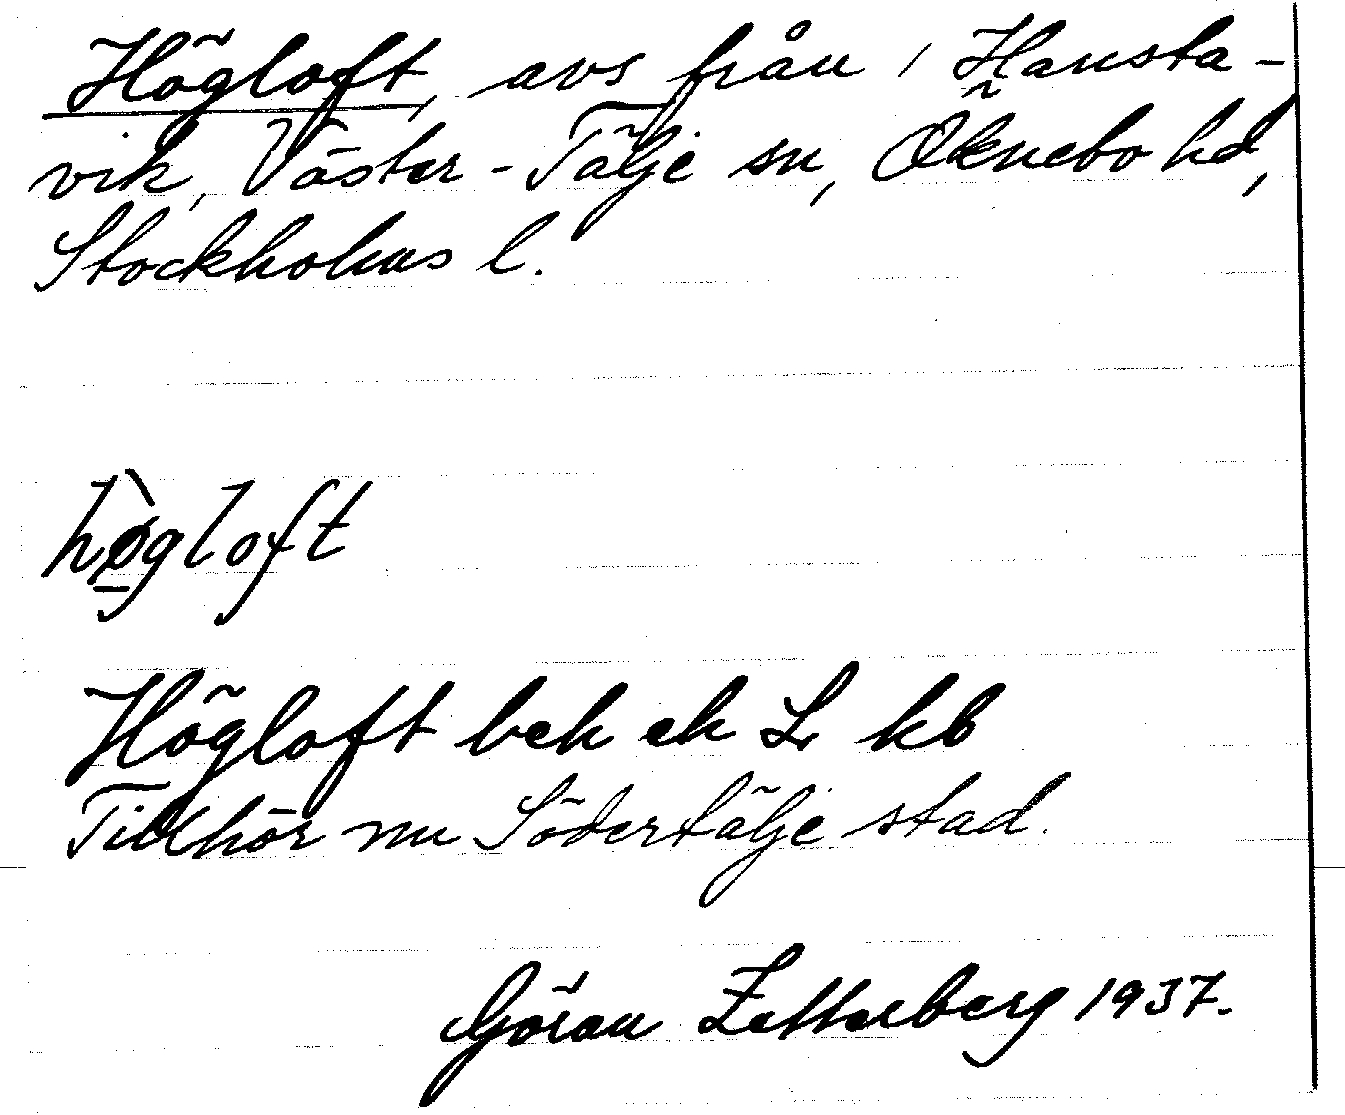 Högloft, avs från 1 Hansta-
vik, Väster-Tälje sn, Öknebo hd,
Stockholms l.
hø̀gloft
Högloft bek ek L kb
Tillhör nu Södertälje stad.
Göran Zetterberg 1937.